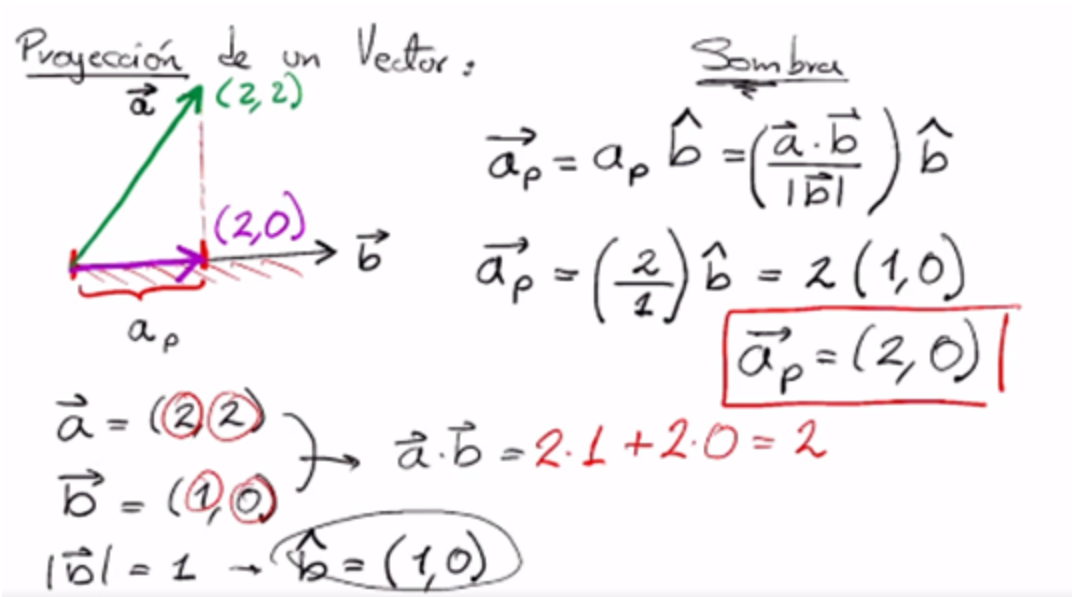 Proyección de un Vector:
Sombra
a⃗ (2,2)
(2,0)
b⃗
aₚ
a⃗ₚ = aₚ b̂ = (a⃗·b⃗ / |b⃗|) b̂
a⃗ₚ = (2/1) b̂ = 2 (1,0)
a⃗ₚ = (2,0)
a⃗ = (2,2)
b⃗ = (1,0)
→ a⃗·b⃗ = 2·1 + 2·0 = 2
|b⃗| = 1 → b̂ = (1,0)